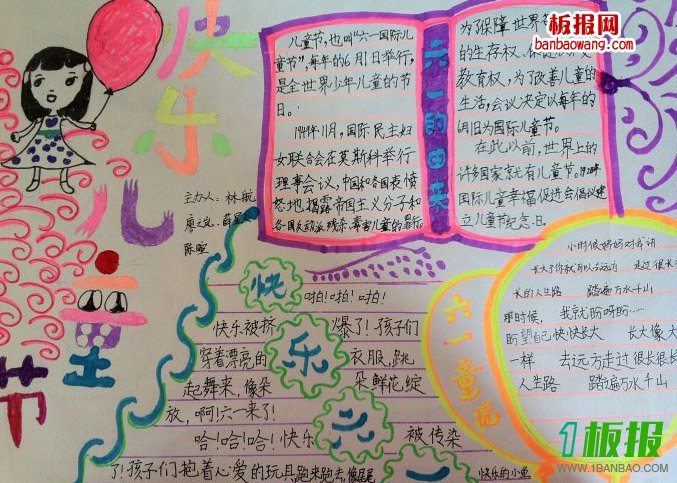 板报网
banbaowang.com
快
乐
儿
童
节
主办人：林航
陈
儿童节，也叫“六一国际儿
童节”，每年的6月1日举行，
是全世界少年儿童的节
日。
1949年11月，国际民主妇
女联合会在莫斯科举行
理事会议，中国和各国表愤
怒地揭露帝国主义分子和
各国反动派残杀、毒害儿童的
六一的由来
为保障世界
的生存权、
教育权，为了改善儿童的
生活，会议决定以每年的
6月1日为国际儿童节。
在此以前，世界上的
许多国家就有儿童节。
国际儿童幸福促进会倡议建
立儿童节纪念日。
快
乐
六
一
啪！啪！啪！
快乐被挤 爆了！孩子们
穿着漂亮的 衣服，跳
起舞来，像朵 朵鲜花绽
放，啊！六一来了！
哈！哈！哈！快乐 被传染
了！孩子们抱着心爱的玩具跑来跑去像
快乐的小鱼
六一童谣
小时候妈妈对我讲
长大了你就可以去远方 走过很长
长的人生路 踏遍万水千山
那时候， 我就盼呀盼
盼望自己快快长大 长大像大
一样 去远方走过很长很长
人生路 踏遍万水千山
1板报
WWW.1BANBAO.COM